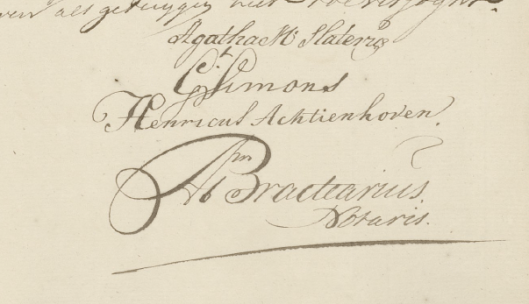 als getuijgen
Agatha Mt Slaterus
G Simons
Henricus Achtienhoven.
Abm Bracttarius.
Notaris.